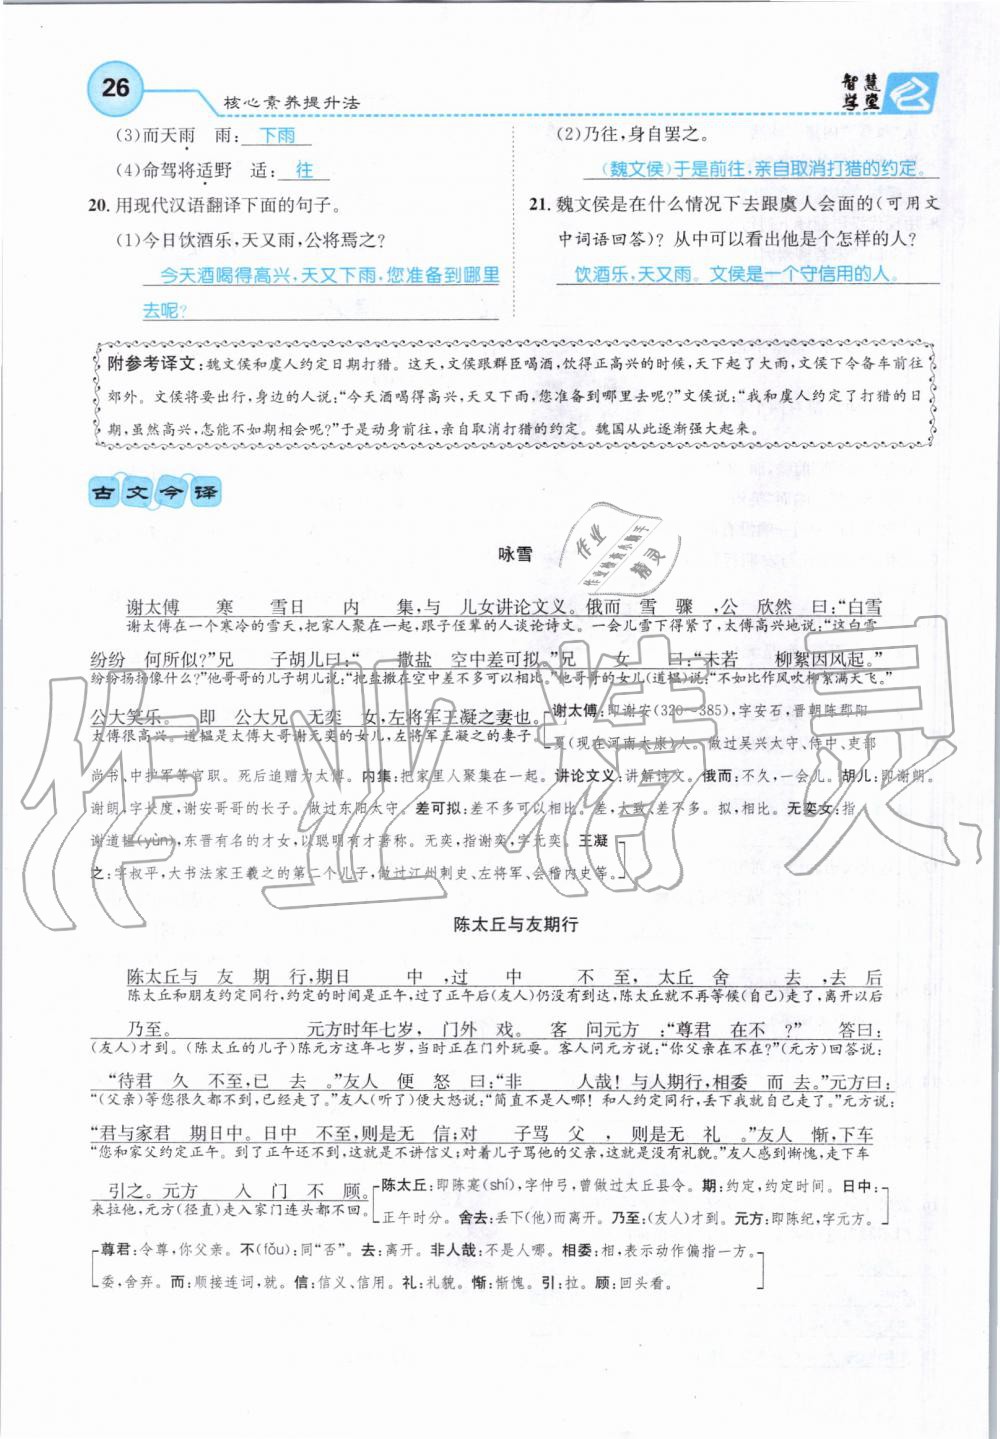 26
核心素养提升法
智慧
学堂
(3)而天雨　雨：下雨
(4)命驾将适野　适：往
20. 用现代汉语翻译下面的句子。
(1)今日饮酒乐，天又雨，公将焉之？
今天酒喝得高兴，天又下雨，您准备到哪里
去呢？
(2)乃往，身自罢之。
(魏文侯)于是前往，亲自取消打猎的约定。
21. 魏文侯是在什么情况下去跟虞人会面的(可用文
中词语回答)？从中可以看出他是个怎样的人？
饮酒乐，天又雨。文侯是一个守信用的人。
附参考译文：魏文侯和虞人约定日期打猎。这天，文侯跟群臣喝酒，饮得正高兴的时候，天下起了大雨，文侯下令备车前往
郊外。文侯将要出行，身边的人说：“今天酒喝得高兴，天又下雨，您准备到哪里去呢？”文侯说：“我和虞人约定了打猎的日
期，虽然高兴，怎能不如期相会呢？”于是动身前往，亲自取消打猎的约定。魏国从此逐渐强大起来。
古文今译
咏雪
谢太傅　寒　雪日　内　集，与　儿女讲论文义。俄而　雪　骤　，公　欣然　曰：“白雪
谢太傅在一个寒冷的雪天，把家人聚在一起，跟子侄辈的人谈论诗文。一会儿雪下得紧了，太傅高兴地说：“这白雪
纷纷　何所似？”兄　子胡儿曰：“　撒盐　空中差可拟。”兄　女　曰：“未若　柳絮因风起。”
纷纷扬扬像什么？”他哥哥的儿子胡儿说：“把盐撒在空中差不多可以相比。”他哥哥的女儿(道韫)说：“不如比作风吹柳絮满天飞。”
公大笑乐。　即　公大兄　无奕　女，左将军王凝之妻也。
太傅很高兴。道韫是太傅大哥谢无奕的女儿，左将军王凝之的妻子。
谢太傅：即谢安(320—385)，字安石，晋朝陈郡阳
夏(现在河南太康)人。做过吴兴太守、侍中、吏部
尚书、中护军等官职。死后追赠为太傅。内集：把家里人聚集在一起。讲论文义：讲解诗文。俄而：不久，一会儿。胡儿：即谢朗。
谢朗，字长度，谢安哥哥的长子。做过东阳太守。差可拟：差不多可以相比。差，大致、差不多。拟，相比。无奕女：指
谢道韫(yùn)，东晋有名的才女，以聪明有才著称。无奕，指谢奕，字无奕。王凝
之：字叔平，大书法家王羲之的第二个儿子，做过江州刺史、左将军、会稽内史等。
陈太丘与友期行
陈太丘与　友　期　行，期日　　中　，过　中　　不　至，　太丘　舍　　去　，去　后
陈太丘和朋友约定同行，约定的时间是正午，过了正午后(友人)仍没有到达，陈太丘就不再等候(自己)走了，离开以后
乃至。　　　　　元方时年七岁，　门外　戏。　客　问元方　：“尊君　在不　？”　答曰：
(友人)才到。(陈太丘的儿子)陈元方这年七岁，当时正在门外玩耍。客人问元方说：“你父亲在不在？”(元方)回答说：
“待君　久　不至，已　去　。”友人　便　怒　曰：“非　　人哉！与人期行，相委　而　去。”元方曰：
“(父亲)等您很久都不到，已经走了。”友人(听了)便大怒说：“简直不是人哪！和人约定同行，丢下我走了。”元方说：
“君与家君　期日中。日中　不至，则是无　信；对　子骂　父　，则是无　礼　。”友人　惭，下车
“您和家父约定正午。到了正午还不到，这就是不讲信义；对着儿子骂他的父亲，这就是没有礼貌。”友人感到惭愧，走下车
引之。元方　入　门　不　顾。
来拉他，元方(径直)走入家门连头都不回。
陈太丘：即陈寔(shí)，字仲弓，曾做过太丘县令。期：约定，约定时间。日中：
正午时分。舍去：丢下(他)而离开。乃至：(友人)才到。元方：即陈纪，字元方。
尊君：令尊，你父亲。不(fǒu)：同“否”。去：离开。非人哉：不是人哪。相委：相，表示动作偏指一方。
委，舍弃。而：顺接连词，就。信：信义、信用。礼：礼貌。惭：惭愧。引：拉。顾：回头看。
作业精灵